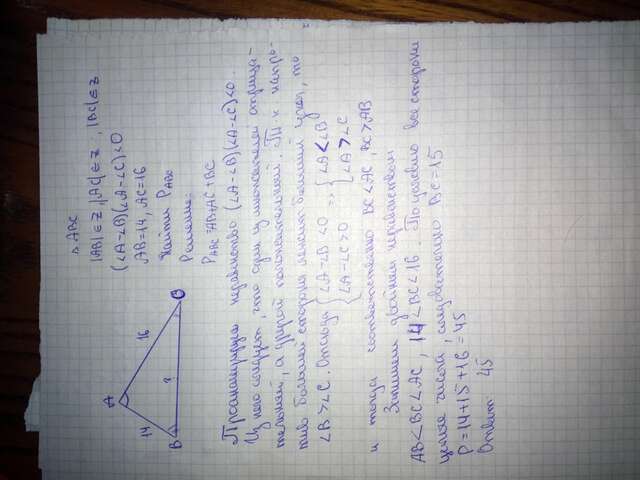 △ ABC
|AB| ∈ Z, |AC| ∈ Z, |BC| ∈ Z
(∠A-∠B)(∠A-∠C)<0
AB=14, AC=16
Найти P_ABC
Решение:
P_ABC=AB+AC+BC
A
14
16
B
?
C
Проанализируем неравенство (∠A-∠B)(∠A-∠C)<0.
Из него следует, что один из множителей отрица-
тельный, а другой положительный. Т.к. напро-
тив большей стороны лежит больший угол, то
∠B>∠C. Отсюда { ∠A-∠B<0 => { ∠A<∠B
∠A-∠C>0 ∠A>∠C
и тогда соответственно BC<AC, BC>AB
Запишем двойным неравенством
AB<BC<AC, 14<BC<16. По условию все стороны
целые числа, следовательно BC=15
P=14+15+16=45
Ответ: 45